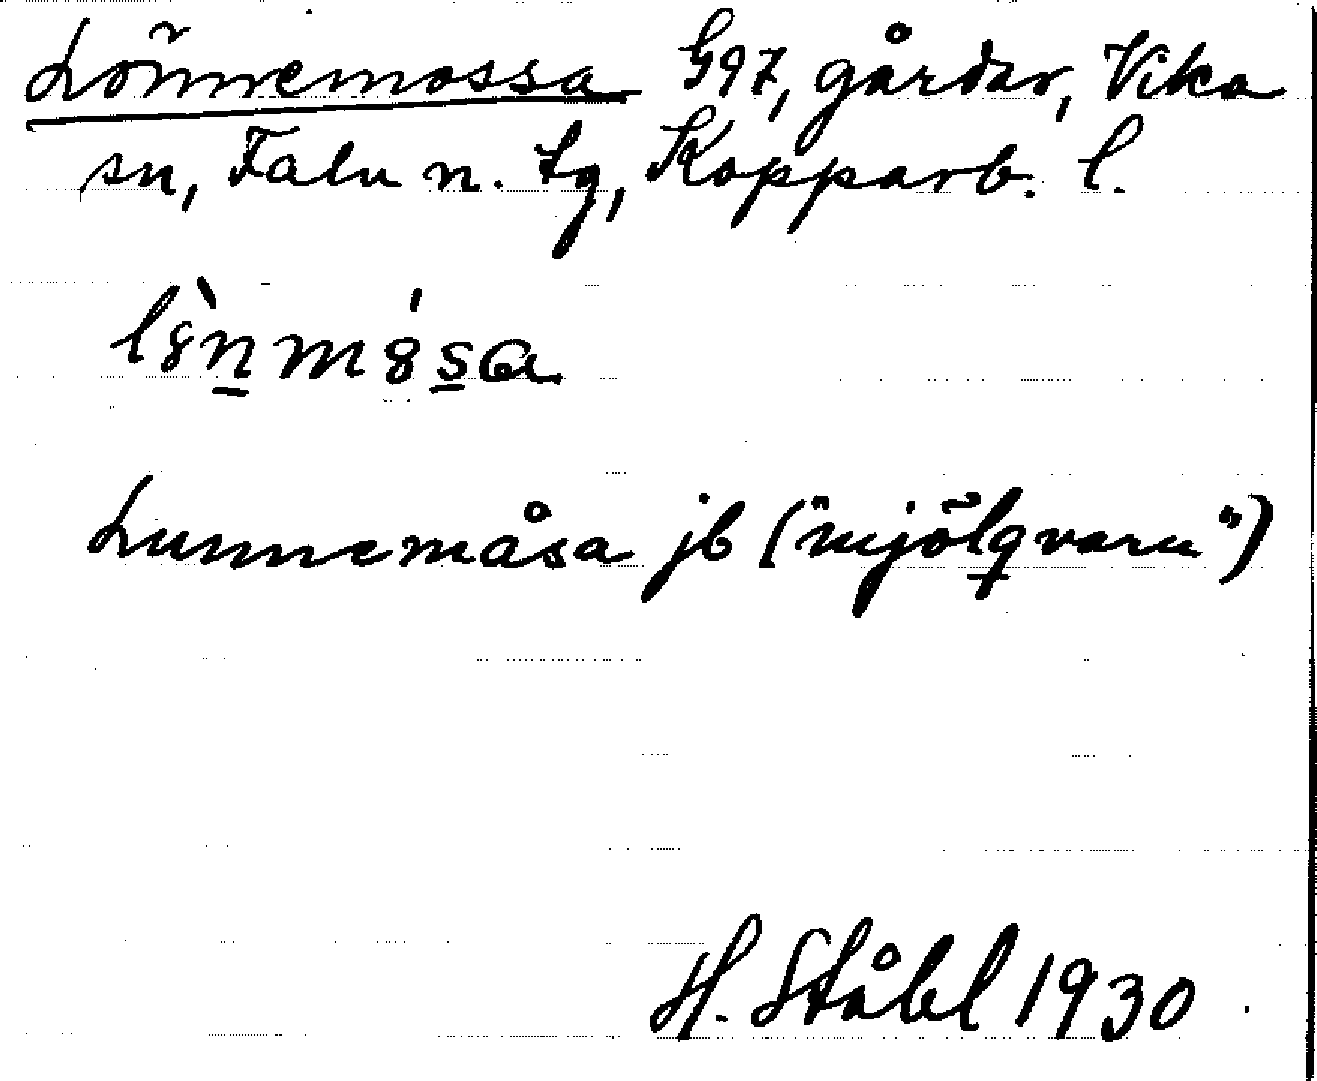 Lönnemossa G97, gårdar, Vika
sn, Falu n. tg, Kopparb. l.
l8̀n̲m8́s̲a
Lunnemåsa jb ("mjölqvarn")
H. Ståhl 1930